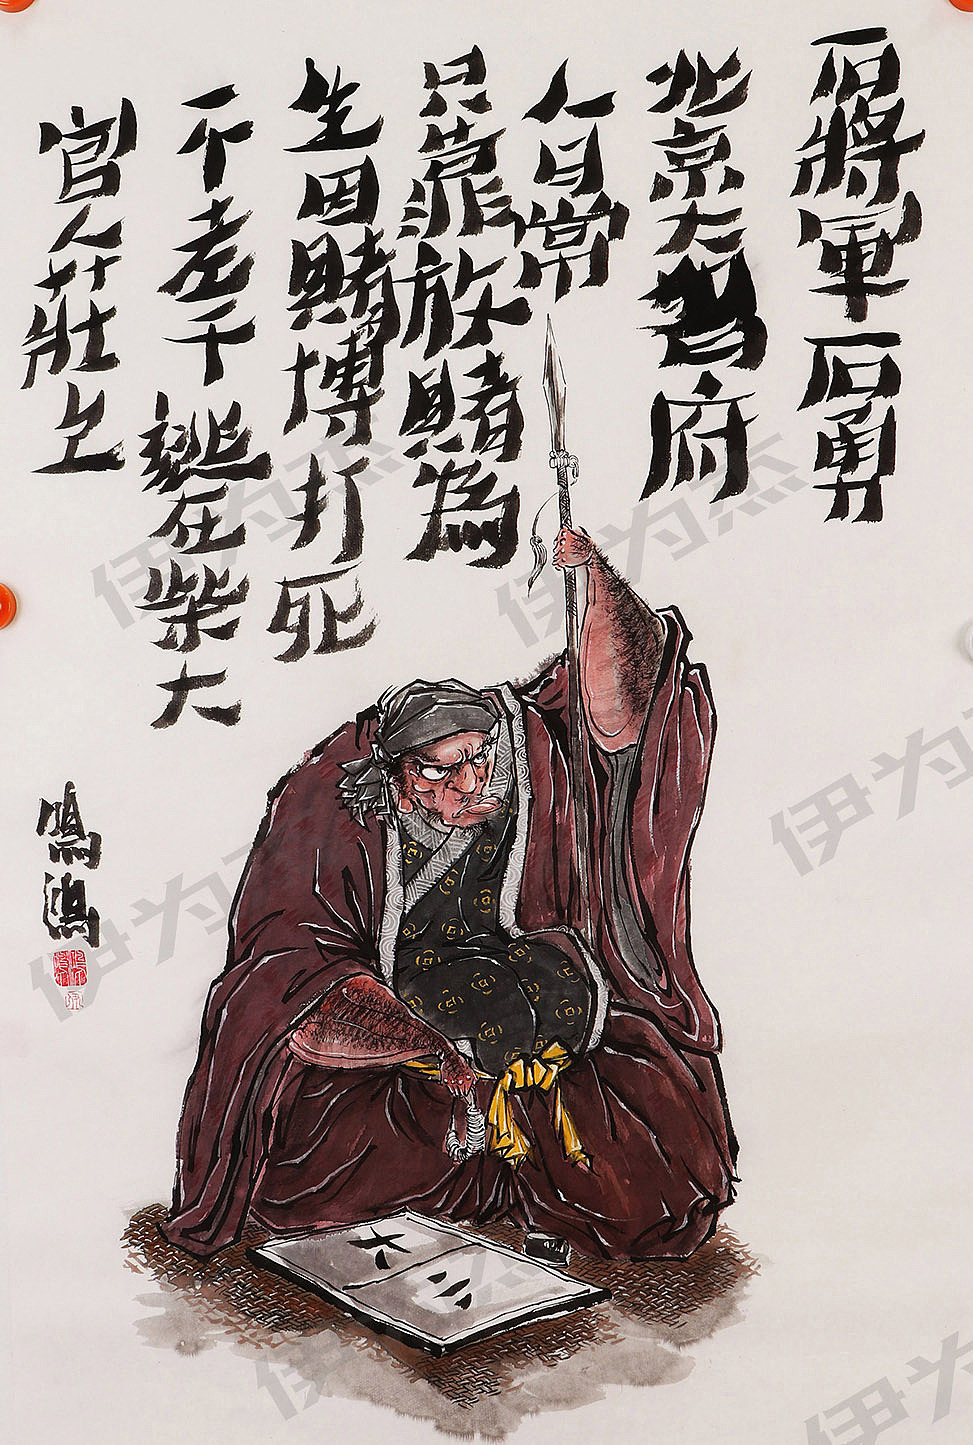 石將軍石勇
北京大名府
人日常
只靠放賭為
生因賭博打死
一个老千逃在柴大
官人莊上
鳴鴻
大
伊为杰
伊为杰
伊为杰
伊为杰